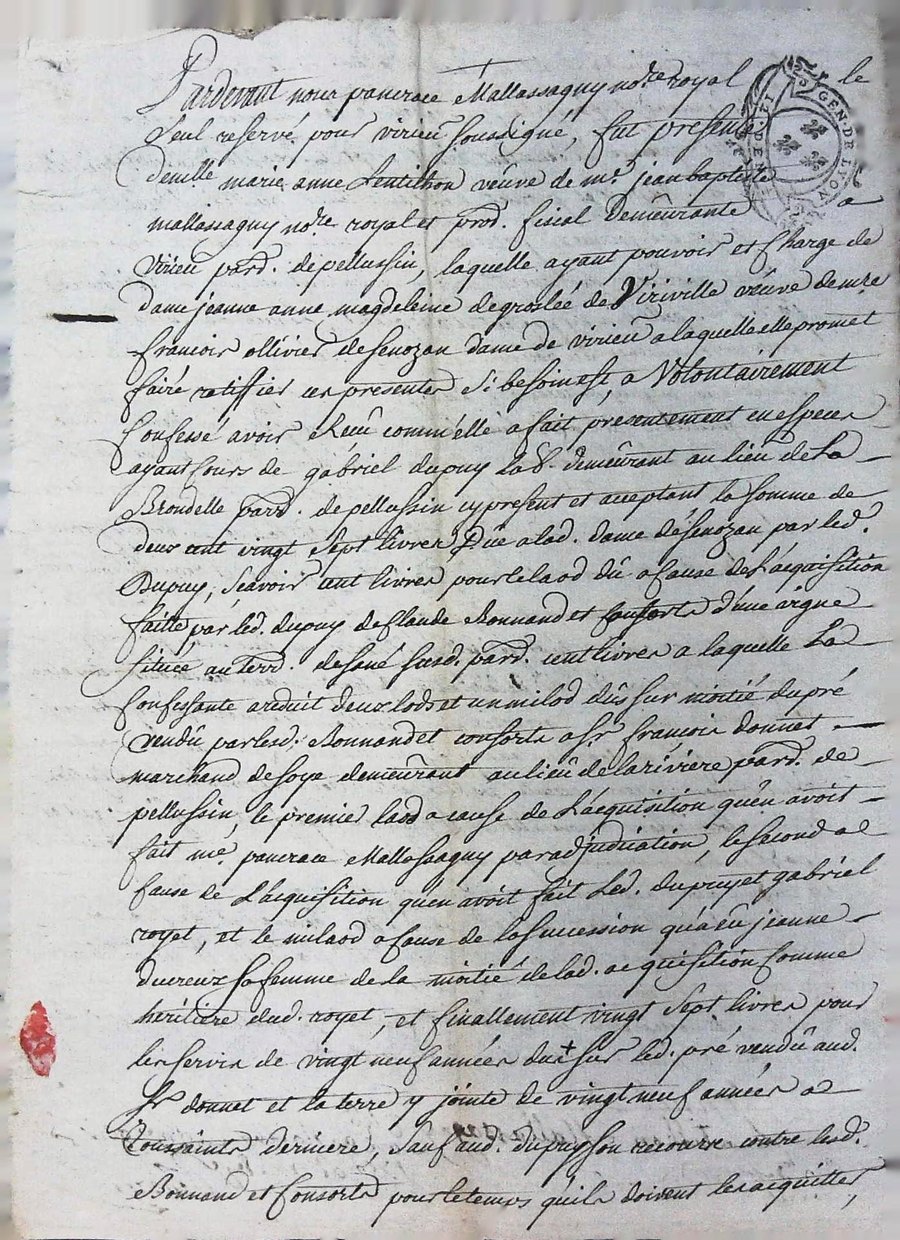 Pardevant nous pancrace Mallassagny no.re royal le
Seul reservé pour virieu soussigné, fut presente
demlle marie anne Lentillon veûve de m.e jean baptiste
mallassagny no.re royal et prod. fiscal demeûrante a
Virieu parr. de pellussin, laquelle ayant pouvoir et Charge de
dame jeanne anne magdeleine de groslée de Viriville veûve de mre
francois ollivier de senozan dame de virieu a laquelle elle promet
faire ratiffier ces presentes Si besoin est, a Volontairement
Confessé avoir Reçû comm'elle a fait presentement en especes
ayant Cours de gabriel dupuy lab. demeûrant au lieu de La
Brondelle parr. de pellussin cy present et acceptant la somme de
deux cent vingt Sept livres Düe a lad. dame de senozan par led.
Dupuy, Scavoir cent livres pour le laod dû a Cause de L'acquisition
faitte par led. dupuy de Claude Bonnand et Consorts d'une vigne
Située au terr. de susd. parr. cent livres a laquelle La
Confessante a reduit deux lods et un milod dûs sur moitié du pré
vendû par lesd. Bonnand et consorts a Sr. francois donnet
marchand de soye demeûrant au lieû de la riviere parr. de
pellussin, le premier laod a cause de L'acquisition qu'en avoit
fait me. pancrace Mallassagny par adjudication, le second a
Cause de L'acquisition qu'en avoit fait Led. gabriel
royet, et le milaod a Cause de la Succession qu'a eû jeanne
ducreux sa femme de la moitié de lad. acquisition Comme
héritiere dud. royet, et finallement vingt Sept livres pour
les servis de vingt neuf années dus + sur led. pré vendû aud.
Sr donnet et la terre y jointe de vingt neuf années a
Toussaints derniere, Sauf aud. dupuy son recours contre lesd.
Bonnand et Consorts pour le temps qu'ils doivent les acquitter,
GEN. DE LYON